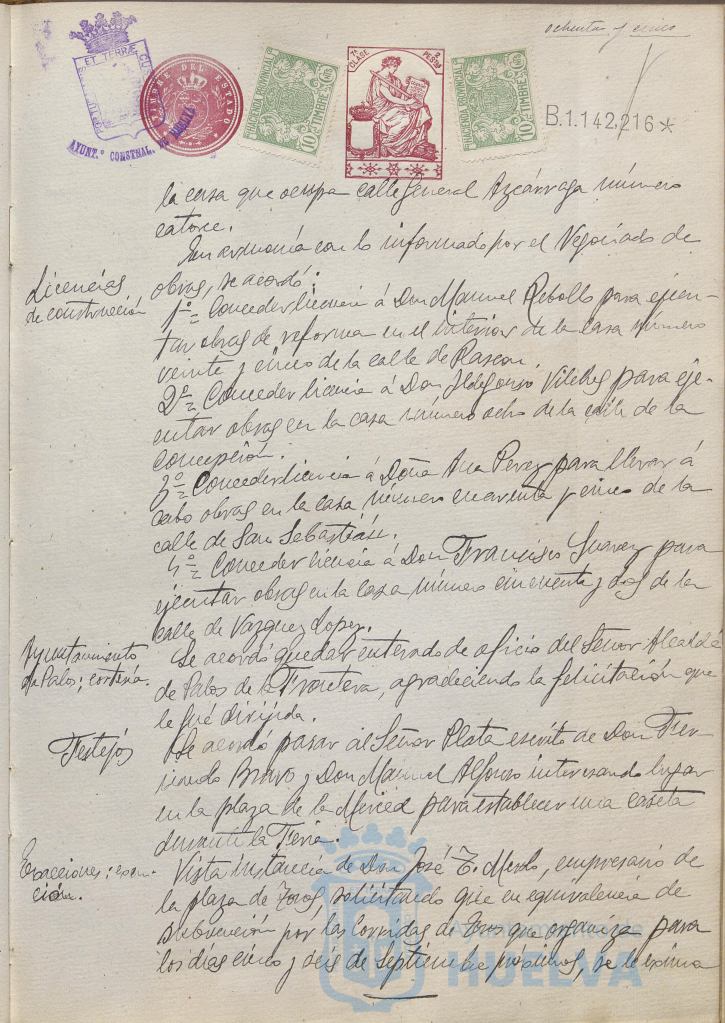 ochenta y cinco
ET TERRÆ
AYUNT.º CONSTNAL. DE HUELVA
TIMBRE DEL ESTADO
HACIENDA PROVINCIAL
TIMBRE
10
7ª CLASE 2 PESTAS
HACIENDA PROVINCIAL
TIMBRE
10
B.1.142,216*
la casa que ocupa calle General Azcárraga número
catorce.
En armonía con lo informado por el Negociado de
Licencias
de construcción
obras, se acordó:
1º= Conceder licencia á Don Manuel Rebollo para ejecu-
tar obras de reforma en el interior de la casa número
veinte y cinco de la calle de Rascon.
2º= Conceder licencia á Don Ildefonso Vilches para eje-
cutar obras en la casa número ocho de la calle de la
Concepción.
3º= Conceder licencia á Doña Ana Perez para llevar á
cabo obras en la casa número cuarenta y cinco de la
calle de San Sebastián.
4º= Conceder licencia á Don Francisco Suarez para
ejecutar obras en la casa número cincuenta y dos de la
calle de Vazquez Lopez.
Ayuntamiento
de Palos; cortesía.
Se acordó quedar enterado de oficio del Señor Alcalde
de Palos de la Frontera, agradeciendo la felicitación que
le fué dirijida.
Festejos
Se acordó pasar al Señor Plata escrito de Don Fer-
nando Bravo y Don Manuel Alfonso interesando lugar
en la plaza de la Merced para establecer una caseta
durante la Feria.
Exacciones; exen-
ción.
Vista instancia de Don José T. Merlo, empresario de
la plaza de Toros, solicitando que en equivalencia de
subvención por las corridas de Toros que organiza para
los días cinco y seis de Septiembre próximos, se le exima
Ayuntamiento de
HUELVA